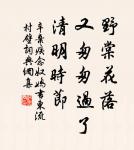 野棠花落
又匆匆過了
清明時節
辛棄疾念奴嬌書東流
村壁詞典網